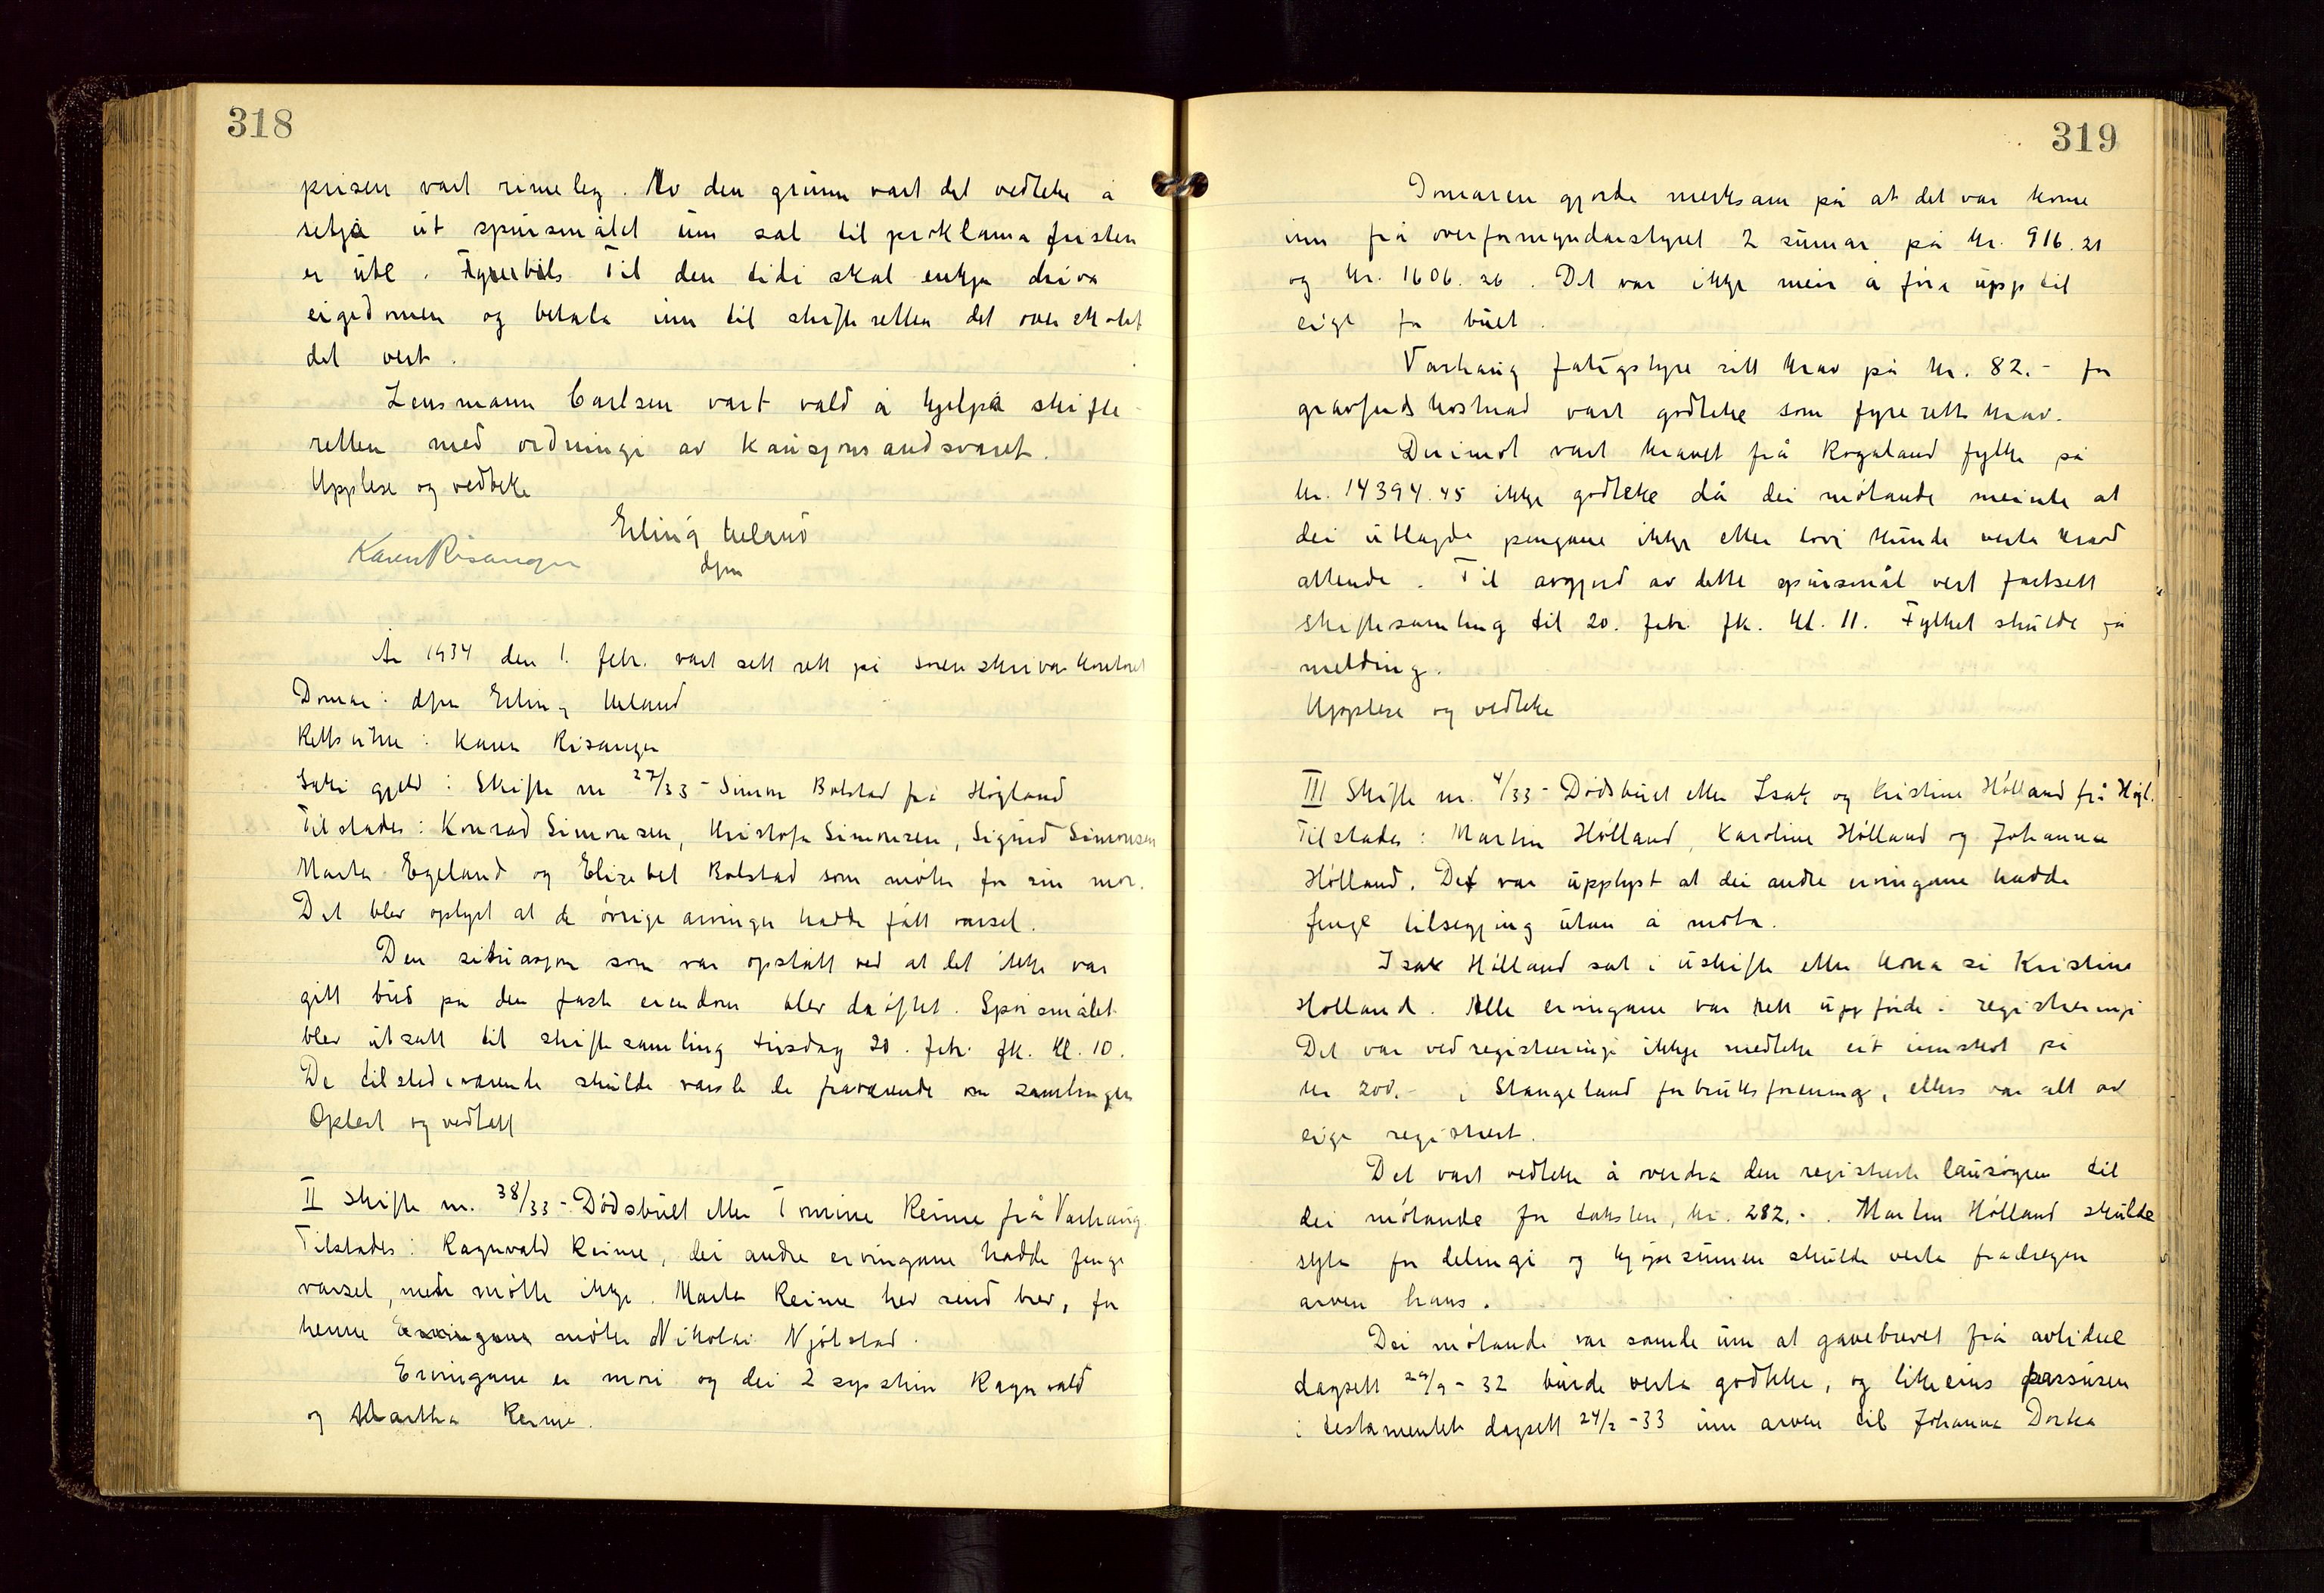 318
prisen vart rimeleg. Av den grunn vart det vedteke å
setja ut spursmålet um sal til proklama fristen
er ute. Fyrebils Til den tidi skal enkja driva
eigedomen og betala inn til skifteretten det overskotet
det vert.
Lensmann Carlsen vart vald å hjelpa skifte-
retten med ordningi av kausjonsandsvaret.
Upplese og vedteke
Erling Ueland
Karen Risanger
dfm
År 1934 den 1. febr. vart sett rett på sorenskrivarkontoret
Domar: dfm Erling Ueland
Rettsvitne: Karen Risanger
Saki gjeld: Skifte nr 27/33 - Simon Bolstad frå Høgland
Tilstades: Konrad Simonsen, Kristofa Simonsen, Sigurd Simonsen
Marta Egeland og Elisebet Bolstad som møter for sin mor.
Det blev oplyst at de øvrige arvinger hadde fått varsel.
Den situasjon som var opstått ved at det ikke var
gitt bud på den faste eiendom blev drøftet. Spørsmålet
blev utsatt til skiftesamling tirsdag 20. febr. fk. kl. 10.
De tilstedeværende skulde varsle de fraværende om samlingen
Oplest og vedtatt
II Skifte nr. 38/33 - Dødsbuet etter Tomine Reime frå Varhaug
Tilstades: Ragnvald Reime, dei andre ervingane hadde fenge
varsel, men møtte ikkje. Marta Reime hev send brev, for
henne Ervingane møter Nikolai Njølstad.
Ervingane er mori og dei 2 sysskin Ragnvald
og Martha Reime.
319
Domaren gjorde merksam på at det var kome
inn frå overformyndarstyret 2 sumar på kr. 916.21
og kr. 1606.26. Det var ikkje meir å føra upp til
eige for buet.
Varhaug fatigstyre sitt krav på kr. 82.- for
gravferdskostnad vart godteke som fyreretts krav.
Derimot vart kravet frå Rogaland fylke på
kr. 14394.45 ikkje godteke då dei møtande meinte at
dei utlagde pengane ikkje etter lovi kunde verta kravd
attende. Til avgjerd av dette spursmål vert fastsett
skiftesamling til 20. febr. fk. kl. 11. Fylket skulde få
melding.
Upplese og vedteke
III Skifte nr. 4/33 - Dødsbuet etter Isak og Kristine Hölland frå Høyl.
Tilstades: Martin Hölland, Karoline Hölland og Johanna
Hölland. Det var upplyst at dei andre ervingane hadde
fenge tilsegjing utan å møta.
Isak Hölland sat i uskifte etter kona si Kristine
Hölland. Alle ervingane var rett uppførde i registreringi
Det var ved registreringi ikkje medteke eit innskot på
kr 200.- i Stangeland forbruksforening, ellers var alt av
eige registrert.
Det vart vedteke å overdra den registrerte lausøyren til
dei møtande for taksten, kr. 282.-. Martin Hölland skulde
syta for delingi og kjøpesumen skulde verta fradregen
arven hans.
Dei møtande var samde um at gavebrevet frå avlidne
dagsett 29/9 - 32 burde verta godteke, og likeeins passusen
i testamentet dagsett 24/2 - 33 um arven til Johanna Dortea